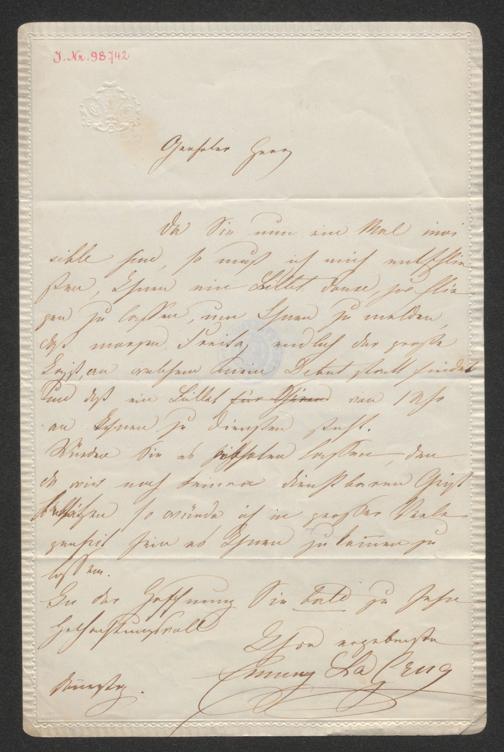 J. Nr. 98742
Geehrter Herr
Da Sie nun ein Mal invi
sible sind, so muß ich mich entschlie
ßen, Ihnen ein Billet
gen zu lassen, um Ihnen zu melden,
daß morgen Freitag endlich der große
an welchem mein Debut statt findet
und daß ein Billet für Ihnen von 1 Uhr
an Ihnen zu Diensten steht.
Würden Sie es abholen lassen, denn
da wir noch keinen dienstbaren Geist
besitzen so würde ich in großer Verle
genheit sein es Ihnen zukommen zu
lassen.
In der Hoffnung Sie bald zu sehen
Hochachtungsvoll
Ihre ergebenste
Emmy La Grua